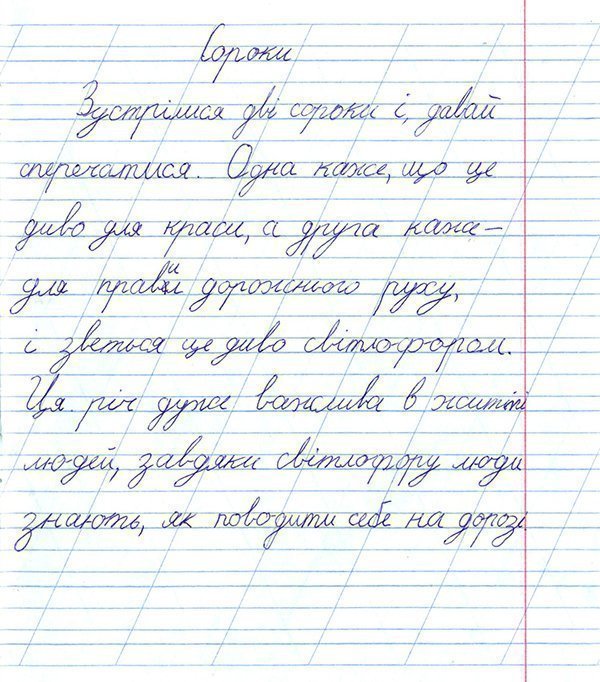 Сороки
Зустрілися дві сороки і, давай
сперечатися. Одна каже, що це
диво для краси, а друга каже –
для правил дорожнього руху,
і зветься це диво світлофором.
Ця річ дуже важлива в житті
людей, завдяки світлофору люди
знають, як поводити себе на дорозі.